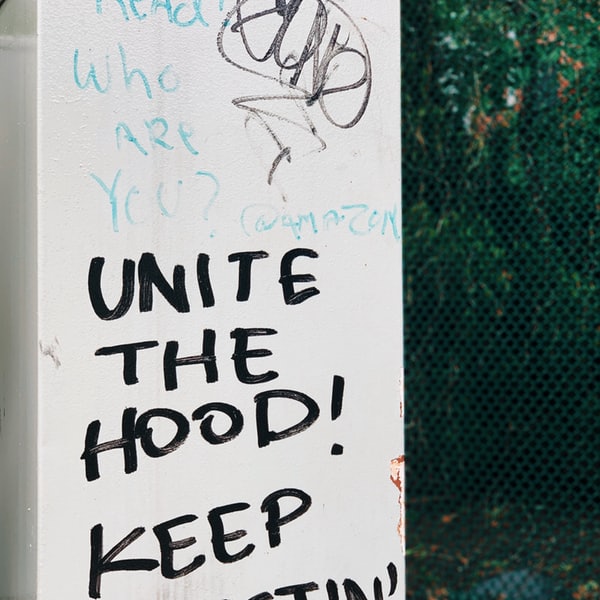 Who
ARe
You?
@AMAZON
UNITE
THE
HOOD!
KEEP